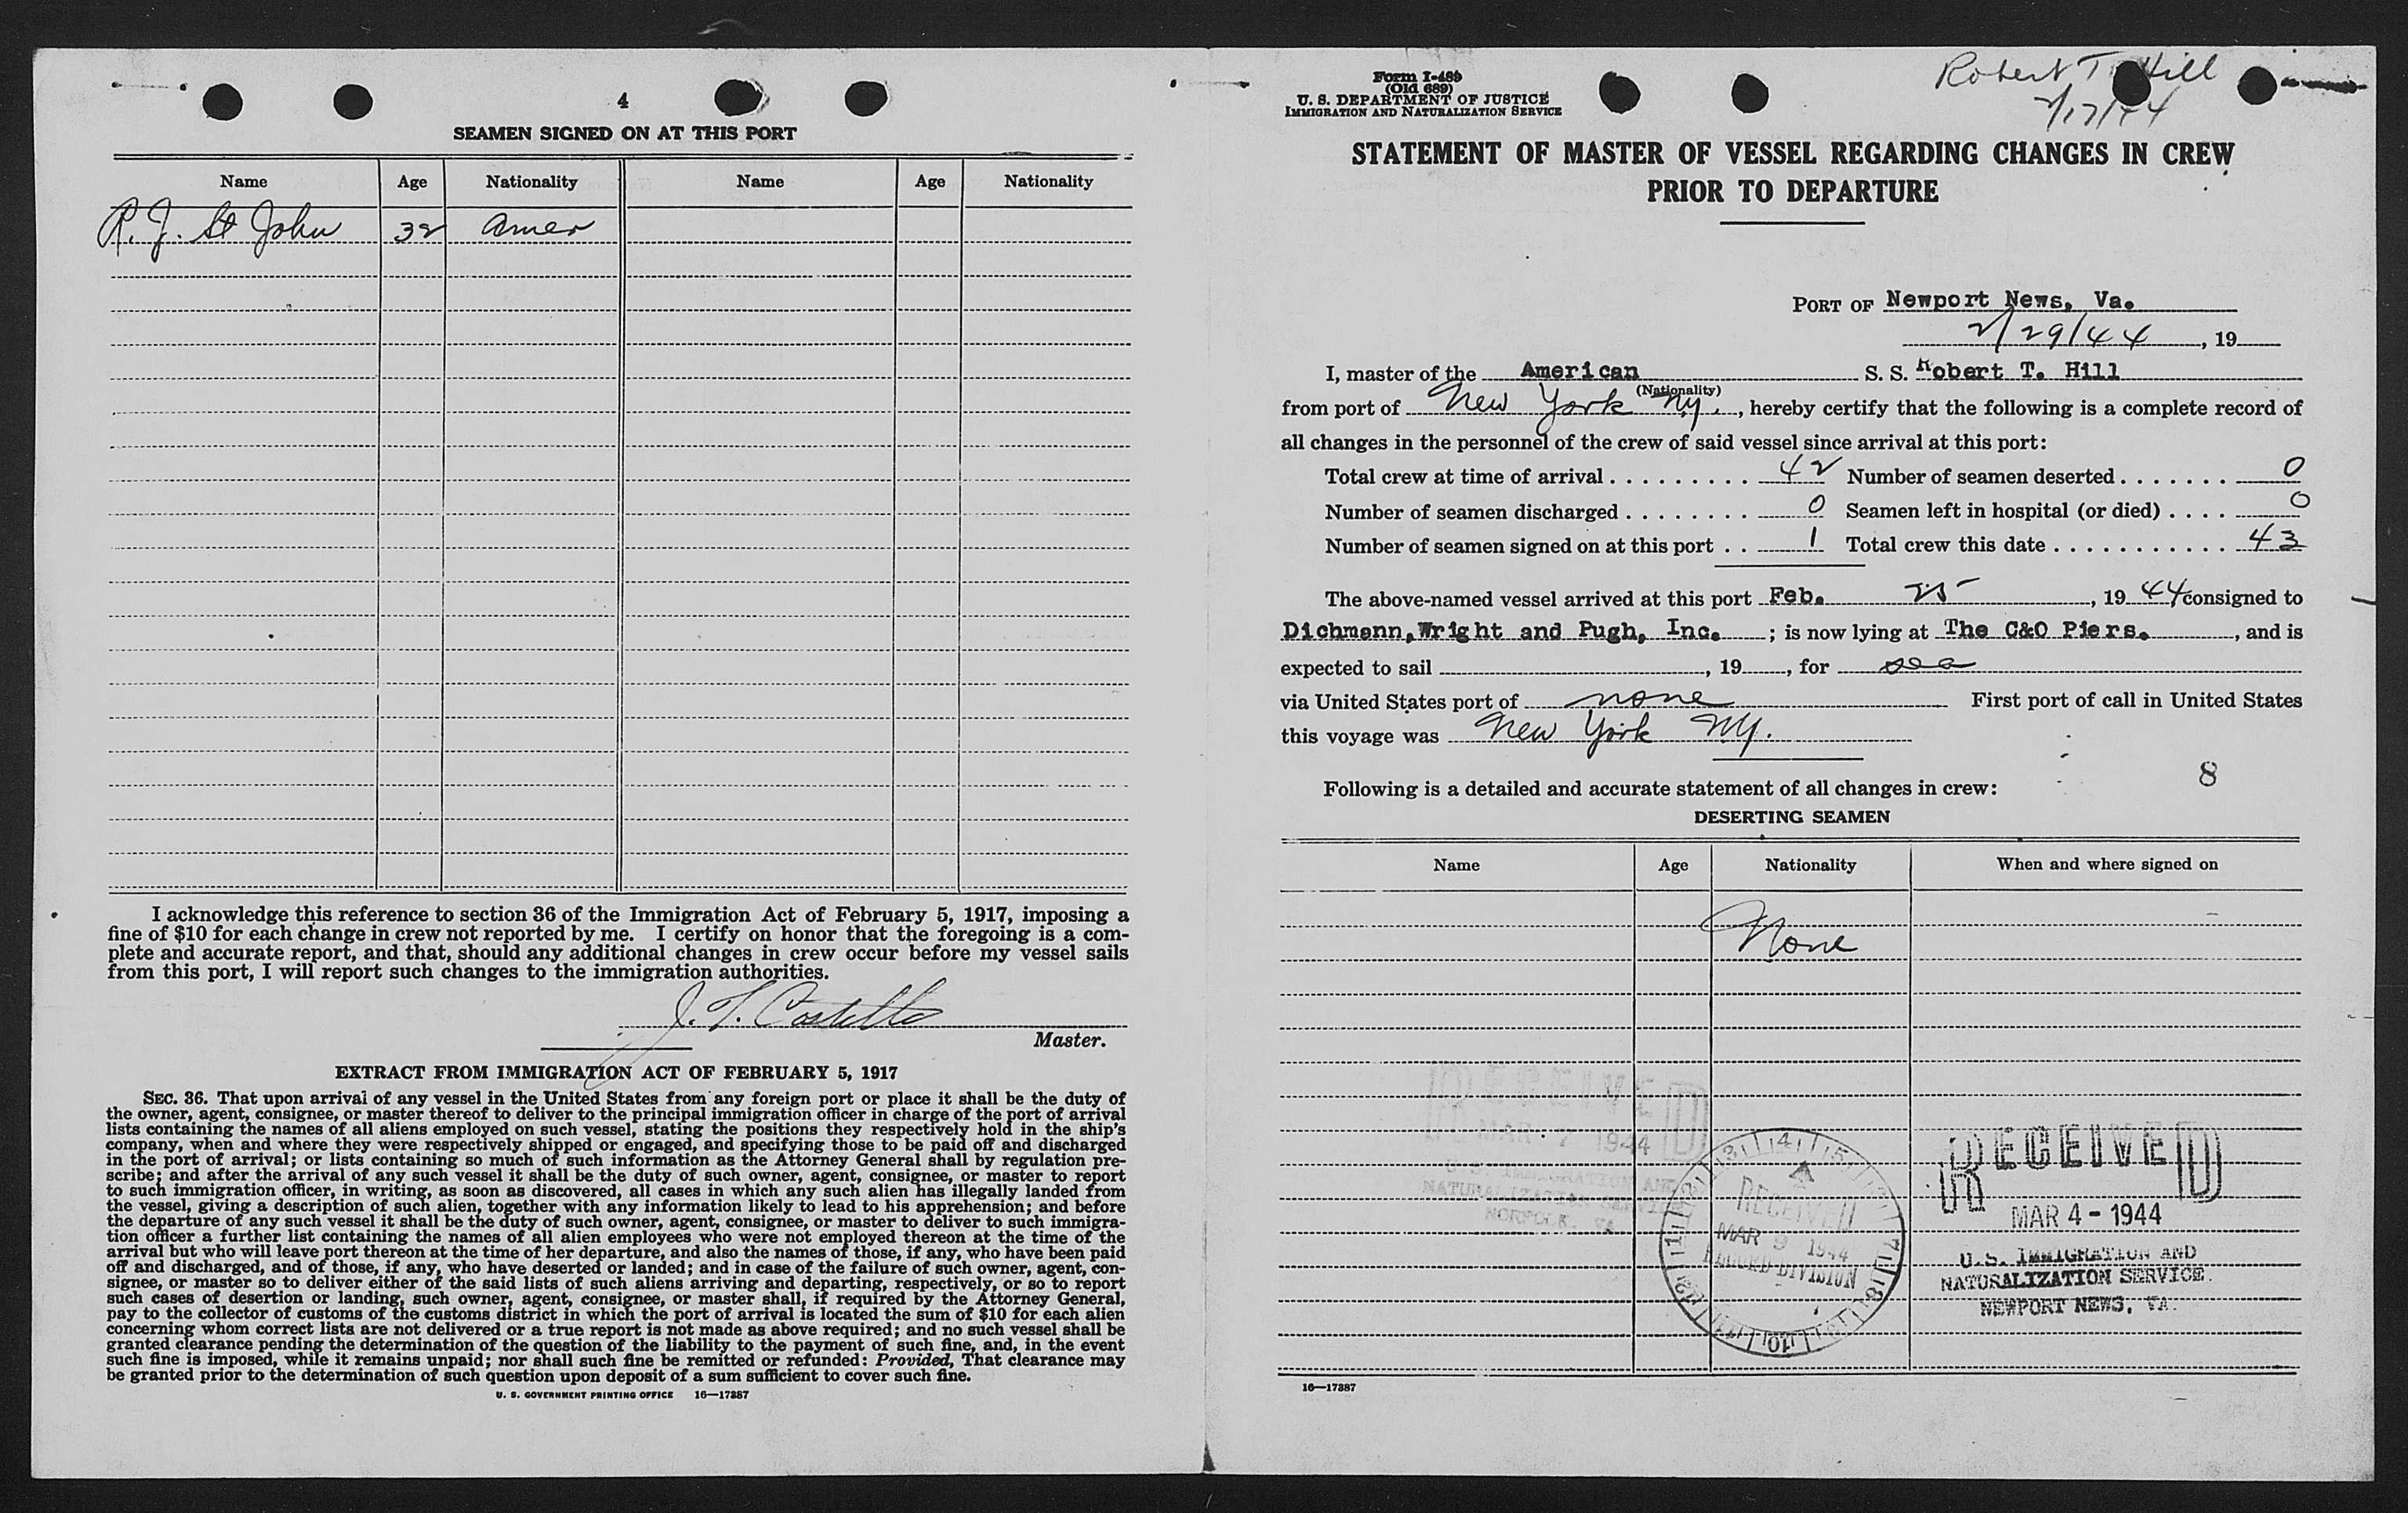 4
SEAMEN SIGNED ON AT THIS PORT
Name Age Nationality Name Age Nationality
R. J. St John 32 Amer
I acknowledge this reference to section 36 of the Immigration Act of February 5, 1917, imposing a
fine of $10 for each change in crew not reported by me. I certify on honor that the foregoing is a com-
plete and accurate report, and that, should any additional changes in crew occur before my vessel sails
from this port, I will report such changes to the immigration authorities.
J. T. Costello
Master.
EXTRACT FROM IMMIGRATION ACT OF FEBRUARY 5, 1917
SEC. 36. That upon arrival of any vessel in the United States from any foreign port or place it shall be the duty of
the owner, agent, consignee, or master thereof to deliver to the principal immigration officer in charge of the port of arrival
lists containing the names of all aliens employed on such vessel, stating the positions they respectively hold in the ship's
company, when and where they were respectively shipped or engaged, and specifying those to be paid off and discharged
in the port of arrival; or lists containing so much of such information as the Attorney General shall by regulation pre-
scribe; and after the arrival of any such vessel it shall be the duty of such owner, agent, consignee, or master to report
to such immigration officer, in writing, as soon as discovered, all cases in which any such alien has illegally landed from
the vessel, giving a description of such alien, together with any information likely to lead to his apprehension; and before
the departure of any such vessel it shall be the duty of such owner, agent, consignee, or master to deliver to such immigra-
tion officer a further list containing the names of all alien employees who were not employed thereon at the time of the
arrival but who will leave port thereon at the time of her departure, and also the names of those, if any, who have been paid
off and discharged, and of those, if any, who have deserted or landed; and in case of the failure of such owner, agent, con-
signee, or master so to deliver either of the said lists of such aliens arriving and departing, respectively, or so to report
such cases of desertion or landing, such owner, agent, consignee, or master shall, if required by the Attorney General,
pay to the collector of customs of the customs district in which the port of arrival is located the sum of $10 for each alien
concerning whom correct lists are not delivered or a true report is not made as above required; and no such vessel shall be
granted clearance pending the determination of the question of the liability to the payment of such fine, and, in the event
such fine is imposed, while it remains unpaid; nor shall such fine be remitted or refunded: Provided, That clearance may
be granted prior to the determination of such question upon deposit of a sum sufficient to cover such fine.
U. S. GOVERNMENT PRINTING OFFICE 16—17387
Form I-489
(Old 689)
U. S. DEPARTMENT OF JUSTICE
IMMIGRATION AND NATURALIZATION SERVICE
Robert T. Hill
2/17/44
STATEMENT OF MASTER OF VESSEL REGARDING CHANGES IN CREW
PRIOR TO DEPARTURE
PORT OF Newport News, Va.
2/29/44, 19
I, master of the American S. S. Robert T. Hill
(Nationality)
from port of New York NY., hereby certify that the following is a complete record of
all changes in the personnel of the crew of said vessel since arrival at this port:
Total crew at time of arrival 42 Number of seamen deserted 0
Number of seamen discharged 0 Seamen left in hospital (or died) 0
Number of seamen signed on at this port 1 Total crew this date 43
The above-named vessel arrived at this port Feb. 25, 1944 consigned to
Dichmann,Wright and Pugh, Inc. ; is now lying at The C&O Piers. , and is
expected to sail , 19 , for sea
via United States port of none First port of call in United States
this voyage was New York NY.
8
Following is a detailed and accurate statement of all changes in crew:
DESERTING SEAMEN
Name Age Nationality When and where signed on
None
RECEIVED
MAR 7 1944
U. S. IMMIGRATION AND
NATURALIZATION SERVICE
NORFOLK, VA
RECEIVED
MAR 9 1944
RECORD DIVISION
RECEIVED
MAR 4 - 1944
U.S. IMMIGRATION AND
NATURALIZATION SERVICE
NEWPORT NEWS, VA.
16—17387